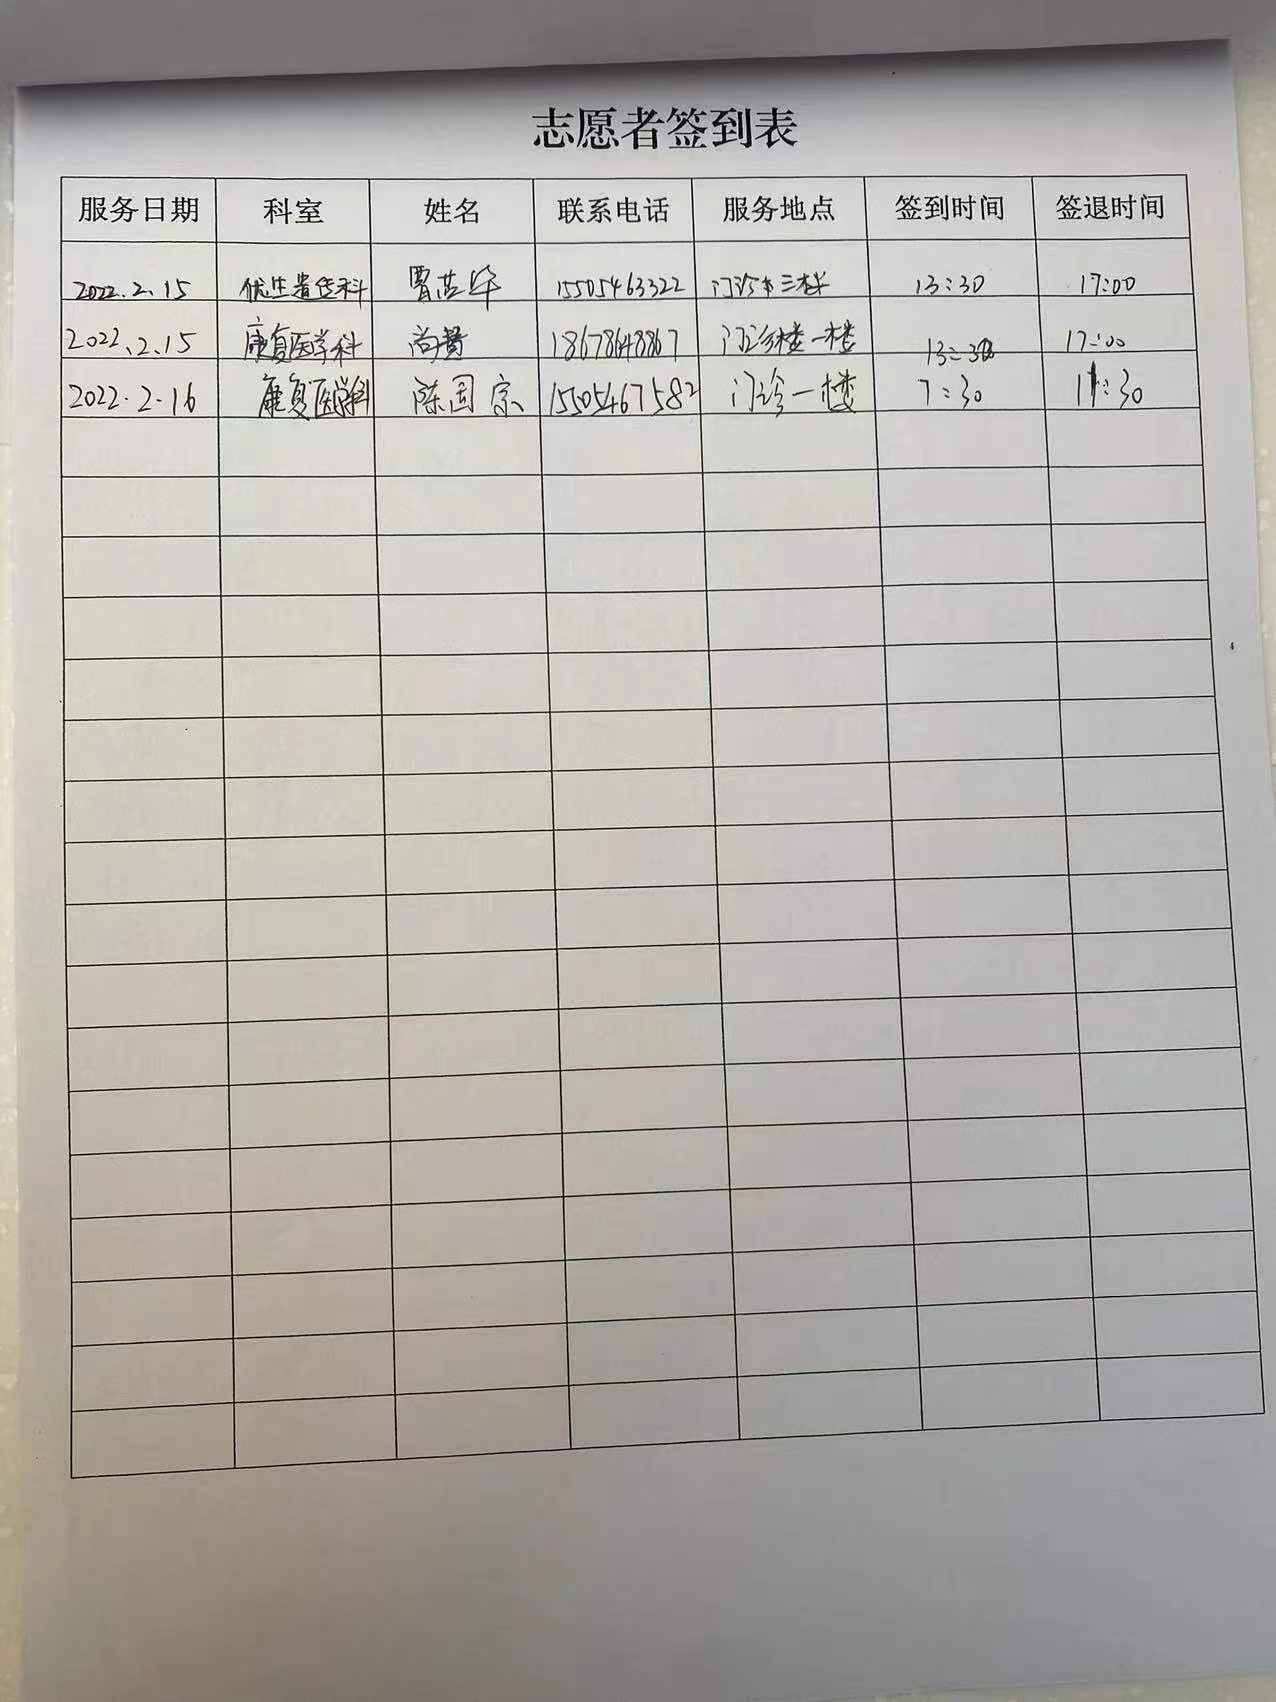 志愿者签到表
服务日期 科室 姓名 联系电话 服务地点 签到时间 签退时间
2022.2.15 优生遗传科 15505463322 门诊三楼 13:30 17:00
2022.2.15 康复医学科 尚 18678648867 门诊楼一楼 13:30 17:00
2022.2.16 康复医学科 陈国宗 15505467582 门诊一楼 7:30 11:30